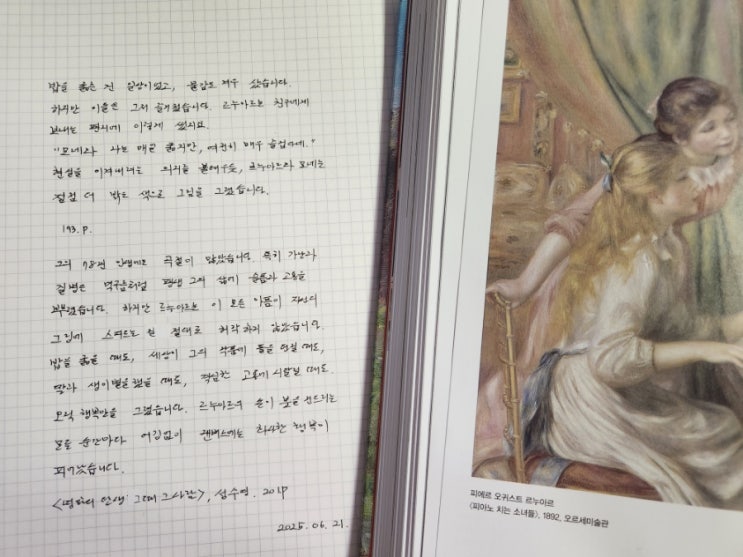 밥을 굶은 건 일상이었고, 물감도 겨우 샀습니다.
하지만 이들은 그저 즐거웠습니다. 르누아르는 친구에게
보내는 편지에 이렇게 썼지요.
"모네와 나는 매일 굶지만, 여전히 매우 즐겁다네."
현실을 이겨내려는 의지를 불태우듯, 르누아르와 모네는
점점 더 밝은 색으로 그림을 그렸습니다.
193.p.
그의 78년 인생에는 곡절이 많았습니다. 특히 가난과
질병은 먹구름처럼 평생 그의 삶에 슬픔과 고통을
뿌렸습니다. 하지만 르누아르는 이 모든 아픔이 자신의
그림에 스며드는 걸 절대로 허락하지 않았습니다.
밥을 굶을 때도, 세상이 그의 작품에 돌을 던질 때도,
딸과 생이별을 했을 때도, 격심한 고통에 시달릴 때도
오직 행복만을 그렸습니다. 르누아르의 손이 붓을 건드리는
모든 순간마다 어김없이 캔버스에는 화사한 행복이
피어났습니다.
<명화의 탄생: 그때 그 사람>, 성수영. 2019
2025.06.21.
피에르 오귀스트 르누아르
〈피아노 치는 소녀들〉, 1892, 오르세미술관